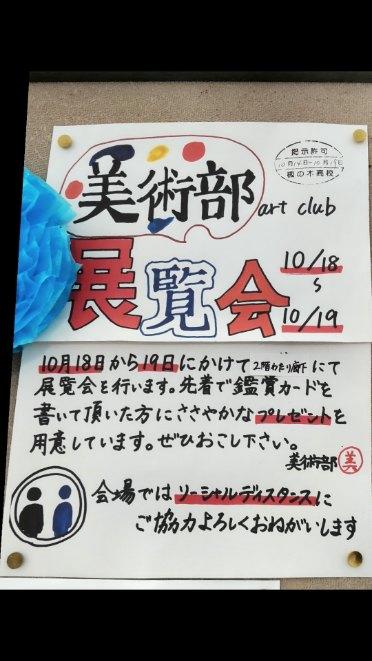 美術部
art club
掲示許可
展覧会
10/18
〜
10/19
10月18日から19日にかけて2階わたり廊下にて
展覧会を行います。先着で鑑賞カードを
書いて頂いた方にささやかなプレゼントを
用意しています。ぜひおこし下さい。
美術部 美
会場ではソーシャルディスタンスに
ご協力よろしくおねがいします